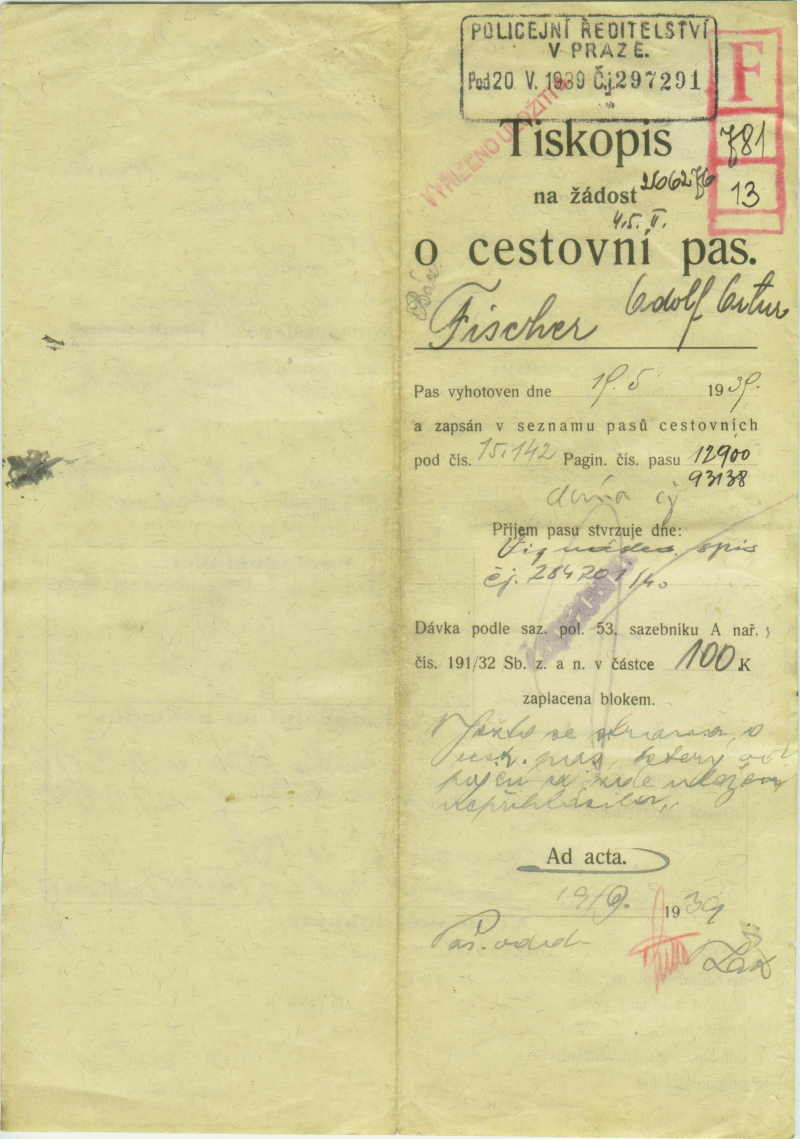 POLICEJNÍ ŘEDITELSTVÍ
V PRAZE.
Pod 20 V. 1939 Č.j. 297291
F
781
13
VYŘÍZENO ULOŽITI
Tiskopis
na žádost 266276
o cestovní pas.
Fischer Adolf Artur
Pas vyhotoven dne 19. 5 1939.
a zapsán v seznamu pasů cestovních
pod čís. 15.142 Pagin. čís. pasu 12900
93138
Příjem pasu stvrzuje dne:
spis
čj. 284201/40
Dávka podle saz. pol. 53. sazebníku A nař.
čís. 191/32 Sb. z. a n. v částce 100 K
zaplacena blokem.
se strana
nepřihlásila.
Ad acta.
19/9. 1939